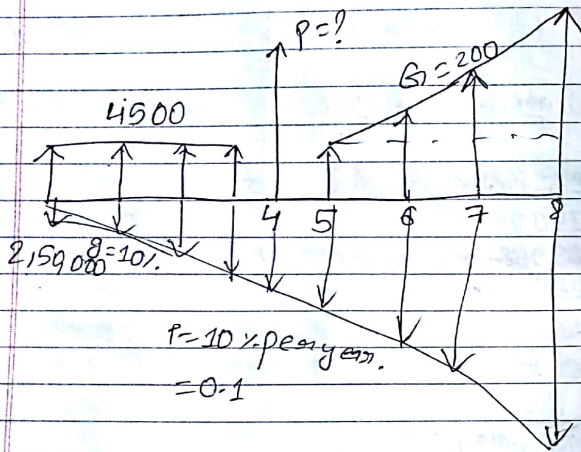 P=?
G=200
4500
4 5 6 7 8
2,59,000 g=10%.
i=10% per year.
=0.1